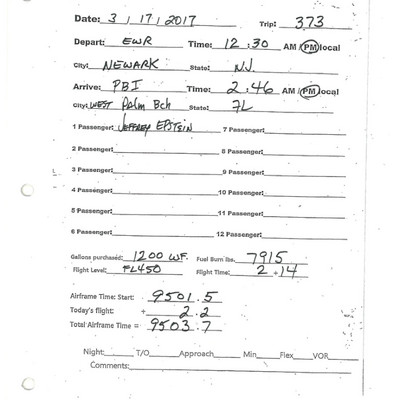 Date: 3 / 17 / 2017 Trip: 373
Depart: EWR Time: 12:30 AM / PM local
City: NEWARK State: NJ
Arrive: PBI Time: 2:46 AM / PM local
City: WEST Palm Bch State: FL
1 Passenger: JEFFREY EPSTEIN 7 Passenger:
2 Passenger: 8 Passenger:
3 Passenger: 9 Passenger:
4 Passenger: 10 Passenger:
5 Passenger: 11 Passenger:
6 Passenger: 12 Passenger:
Gallons purchased: 1200 WF. Fuel Burn lbs. 7915
Flight Level: FL450 Flight Time: 2 + 14
Airframe Time: Start: 9501.5
Today's flight: + 2.2
Total Airframe Time = 9503.7
Night: T/O Approach Min Flex VOR
Comments: